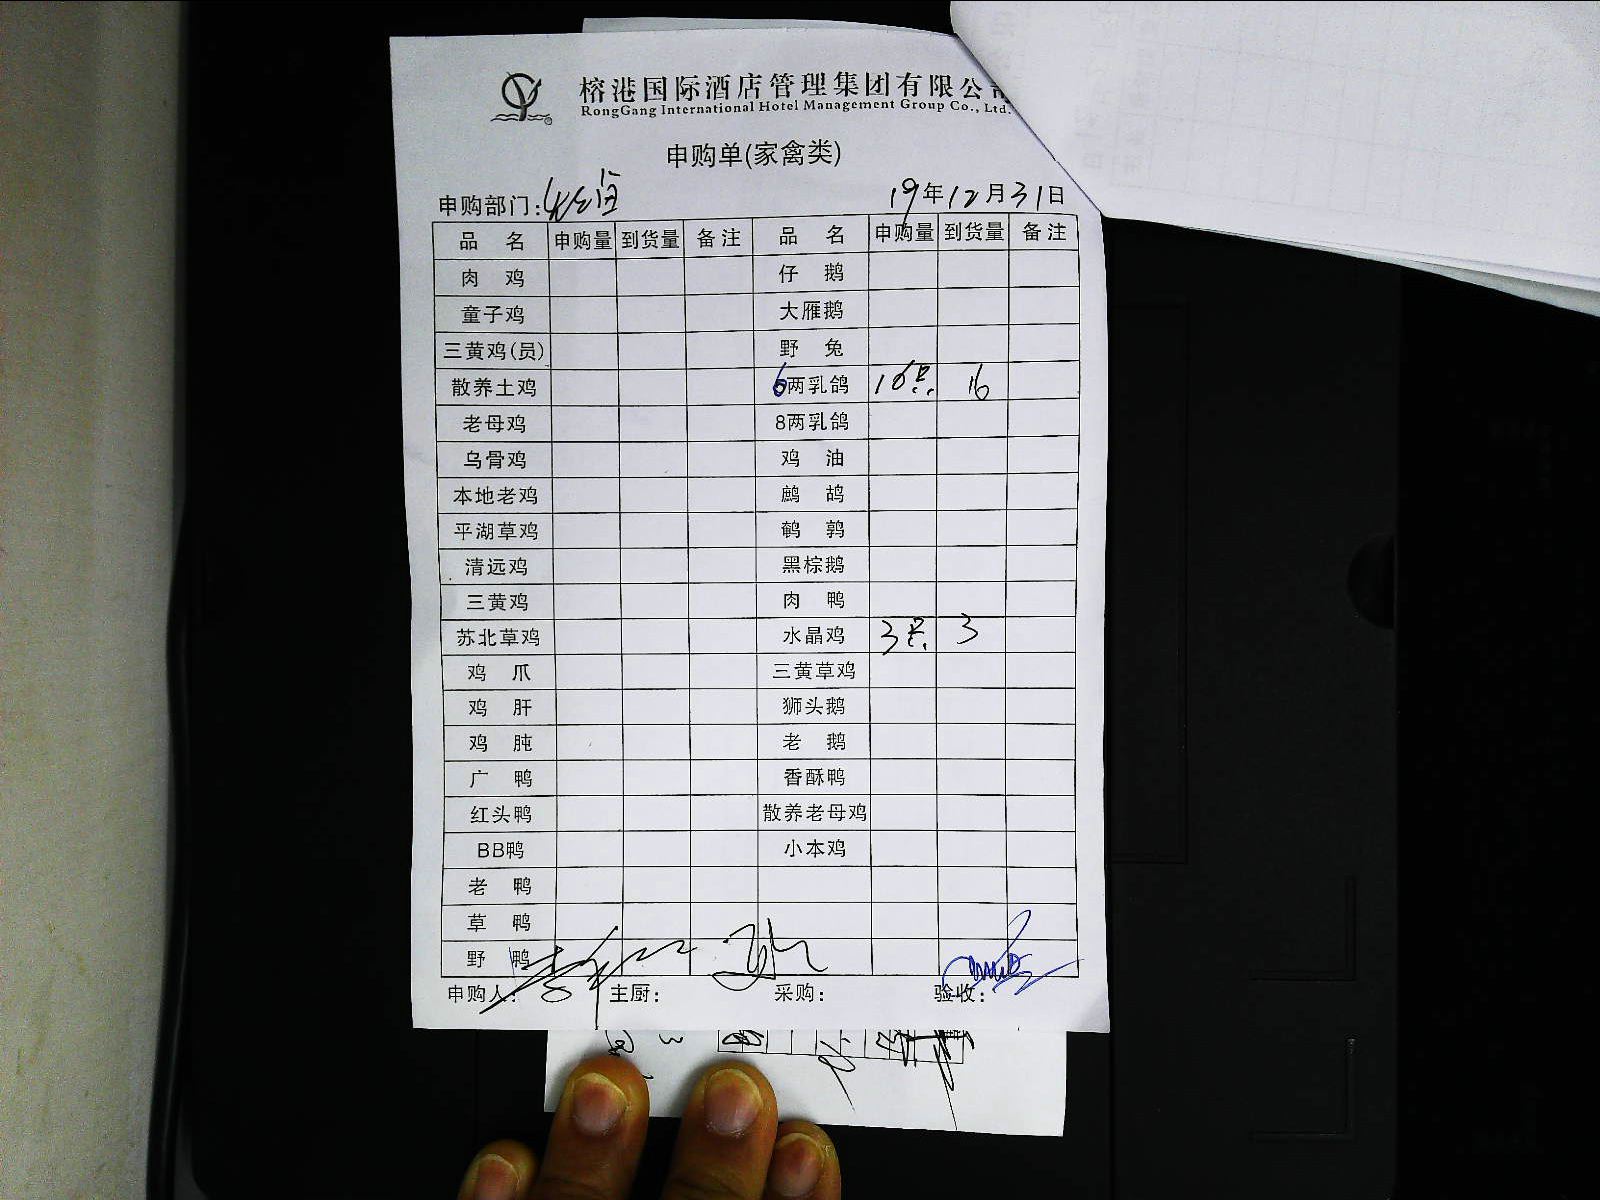 榕港国际酒店管理集团有限公司
RongGang International Hotel Management Group Co., Ltd.
申购单(家禽类)
申购部门: 19年12月31日
品名 申购量 到货量 备注 品名 申购量 到货量 备注
肉鸡 仔鹅
童子鸡 大雁鹅
三黄鸡(员) 野兔
散养土鸡 6两乳鸽 16只 16
老母鸡 8两乳鸽
乌骨鸡 鸡油
本地老鸡 鹧鸪
平湖草鸡 鹌鹑
清远鸡 黑棕鹅
三黄鸡 肉鸭
苏北草鸡 水晶鸡 3只 3
鸡爪 三黄草鸡
鸡肝 狮头鹅
鸡肫 老鹅
广鸭 香酥鸭
红头鸭 散养老母鸡
BB鸭 小本鸡
老鸭
草鸭
野鸭
申购人: 主厨: 采购: 验收: